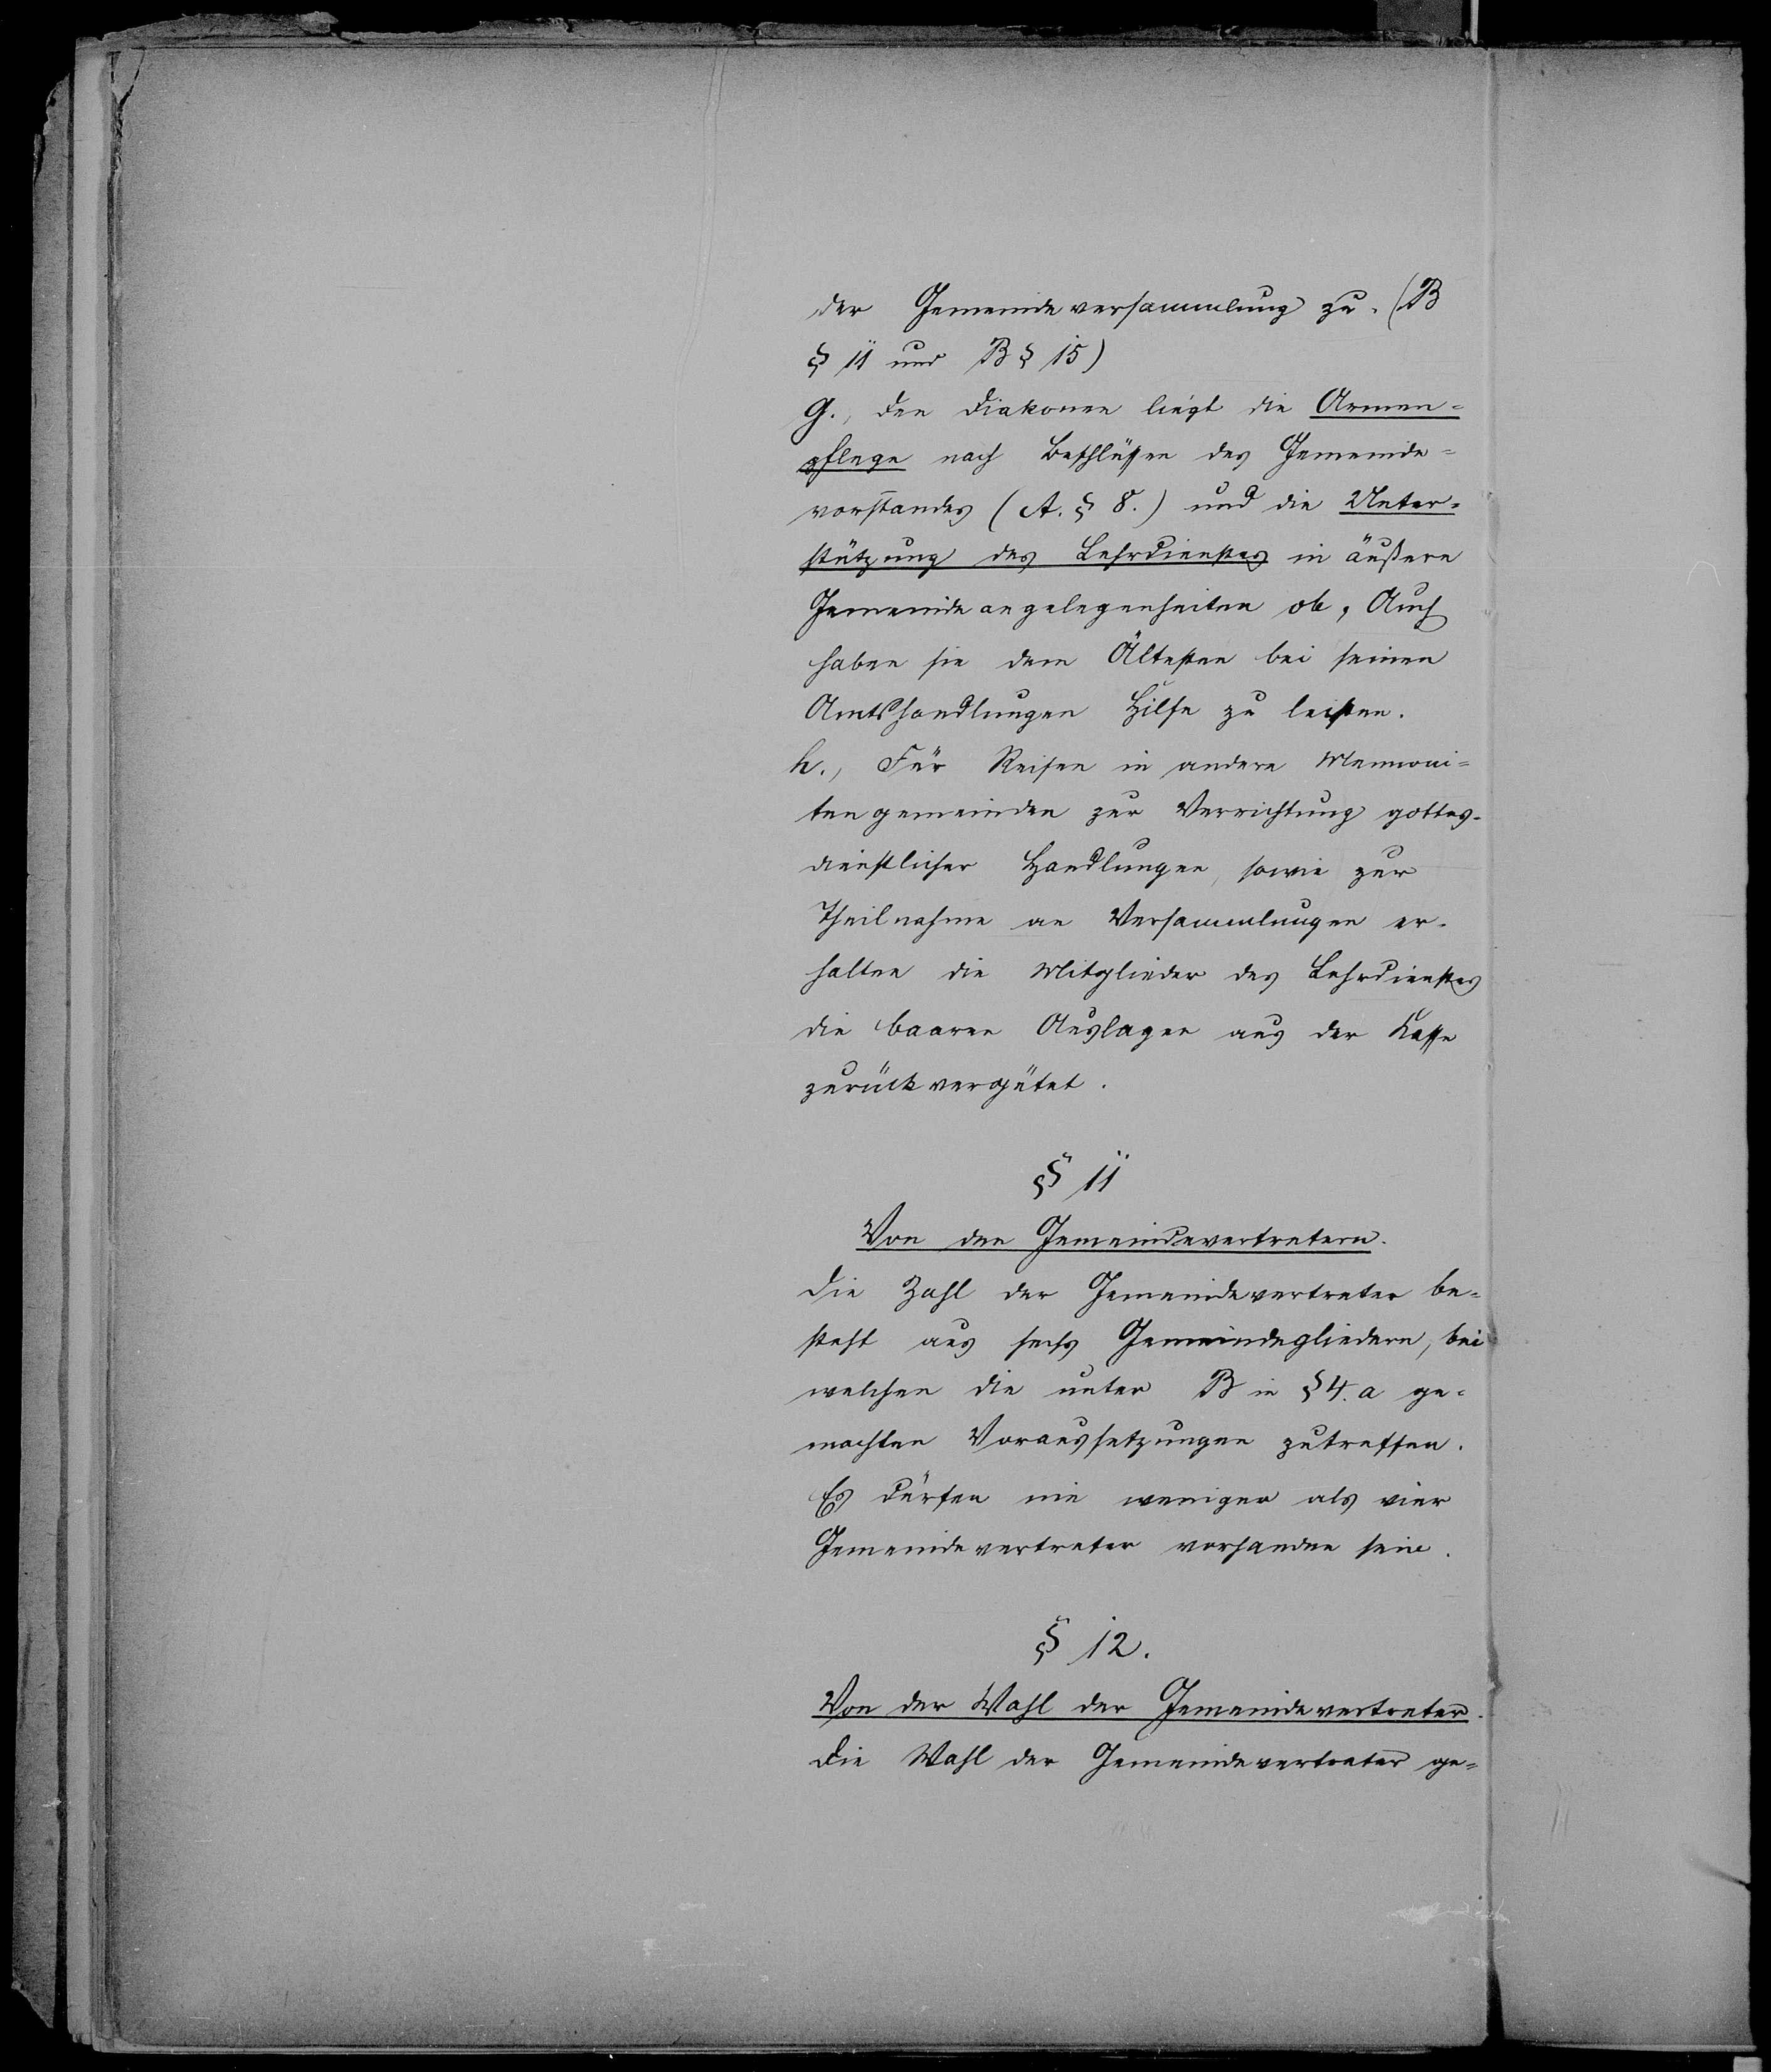 der Gemeindeversammlung zu. (B
§ 11 und B § 15)
g., den Diakonen liegt die Armen=
pflege nach Beschlüssen des Gemeinde=
vorstandes (A. § 8.) und die Unter=
stützung des Lehrdienstes in äußern
Gemeindeangelegenheiten ob, Auch
haben sie dem Ältesten bei seinen
Amtshandlungen Hilfe zu leisten.
h., Für Reisen in andere Mennoni=
tengemeinden zur Verrichtung gottes=
dienstlicher Handlungen, sowie zur
Theilnahme an Versammlungen er=
halten die Mitglieder des Lehrdienstes
die baaren Auslagen aus der Kasse
zurückvergütet.
§ 11
Von den Gemeindevertretern.
Die Zahl der Gemeindevertreter be=
steht aus sechs Gemeindegliedern, bei
welchen die unter B in § 4. a ge=
machten Voraussetzungen zutreffen.
Es dürfen nie weniger als vier
Gemeindevertreter vorhanden sein.
§ 12.
Von der Wahl der Gemeindevertreter.
Die Wahl der Gemeindevertreter ge=